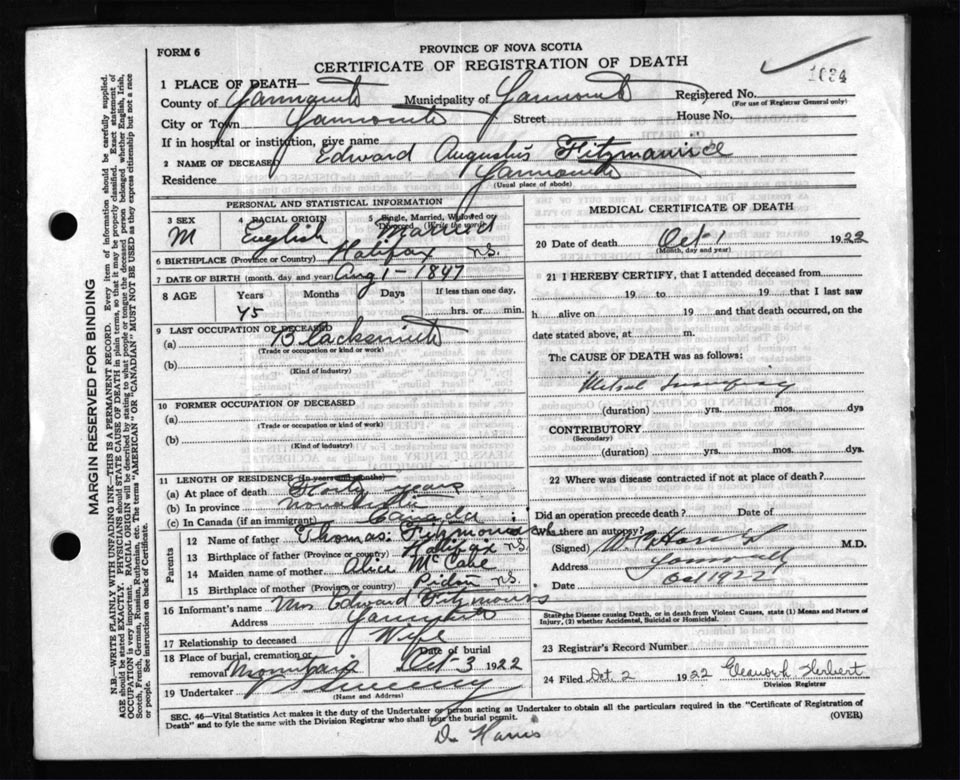 FORM 6
PROVINCE OF NOVA SCOTIA
CERTIFICATE OF REGISTRATION OF DEATH
1634
1 PLACE OF DEATH—
County of Yarmouth Municipality of Yarmouth Registered No.
(For use of Registrar General only)
City or Town Yarmouth Street House No.
If in hospital or institution, give name
2 NAME OF DECEASED Edward Augustus Fitzmaurice
Residence Yarmouth
(Usual place of abode)
PERSONAL AND STATISTICAL INFORMATION
3 SEX 4 RACIAL ORIGIN 5 Single, Married, Widowed or Divorced (Write the word)
M English Married
6 BIRTHPLACE (Province or Country) Halifax N.S.
7 DATE OF BIRTH (month, day and year) Aug 1 - 1847
8 AGE Years Months Days If less than one day,
75 hrs. or min.
9 LAST OCCUPATION OF DECEASED
(a) Blacksmith
(Trade or occupation or kind or work)
(b)
(Kind of industry)
10 FORMER OCCUPATION OF DECEASED
(a)
(Trade or occupation or kind of work)
(b)
(Kind of industry)
11 LENGTH OF RESIDENCE (In years and months)
(a) At place of death Forty years
(b) In province Nova Scotia
(c) In Canada (if an immigrant) Canada
Parents
12 Name of father Thomas Fitzmaurice
13 Birthplace of father (Province or country) Halifax N.S.
14 Maiden name of mother Alice McCabe
15 Birthplace of mother (Province or country) Pictou N.S.
16 Informant's name Mrs Edward Fitzmaurice
Address Yarmouth
17 Relationship to deceased Wife
18 Place of burial, cremation or removal Mountain Date of burial Oct 3 1922
19 Undertaker Sweeny
(Name and Address)
MEDICAL CERTIFICATE OF DEATH
20 Date of death Oct 1 1922
(Month, day and year)
21 I HEREBY CERTIFY, that I attended deceased from
19 to 19 that I last saw
h alive on 19 and that death occurred, on the
date stated above, at m.
The CAUSE OF DEATH was as follows:
Mitral
(duration) yrs. mos. dys
CONTRIBUTORY
(Secondary)
(duration) yrs. mos. dys.
22 Where was disease contracted if not at place of death?
Did an operation precede death? Date of
Was there an autopsy?
(Signed) M.D.
Address Yarmouth
Date Oct 1 1922
State the Disease causing Death, or in death from Violent Causes, state (1) Means and Nature of
Injury, (2) whether Accidental, Suicidal or Homicidal.
23 Registrar's Record Number
24 Filed Oct 2 1922 Eleanor L Herbert
Division Registrar
SEC. 46—Vital Statistics Act makes it the duty of the Undertaker or person acting as Undertaker to obtain all the particulars required in the "Certificate of Registration of
Death" and to fyle the same with the Division Registrar who shall issue the burial permit. (OVER)
Dr Harris
MARGIN RESERVED FOR BINDING
N.B.—WRITE PLAINLY WITH UNFADING INK—THIS IS A PERMANENT RECORD. Every item of information should be carefully supplied.
AGE should be stated EXACTLY. PHYSICIANS should STATE CAUSE OF DEATH in plain terms, so that it may be properly classified. Exact statement of
OCCUPATION is very important. RACIAL ORIGIN will be described by stating to what people or tongue the deceased person belonged whether English, Irish,
Scotch, French, German, Russian, Ruthenian, etc. The terms "AMERICAN" OR "CANADIAN" MUST NOT BE USED as they express citizenship but not a race
or people. See instructions on back of Certificate.